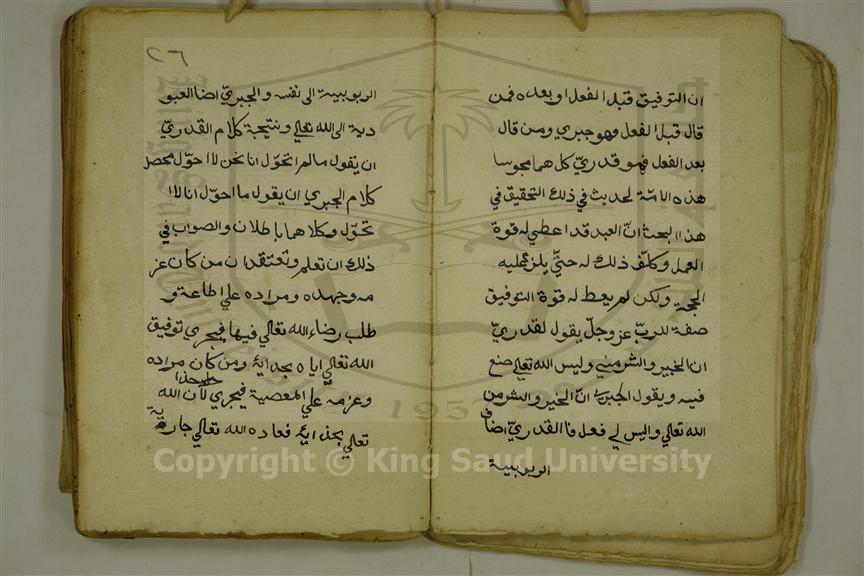 ان التوفيق قبل الفعل او بعده فمن
قال قبل الفعل فهو جبري ومن قال
بعد الفعل فهو قدريّ كل هما مجوسا
هذه الامّة لحديث في ذلك التحقيق في
هذا البحث انّ العبد قد اعطي له قوة
العمل وكلّف ذلك له حتّي يلزم عليه
الحجة ولكن لم يعط له قوة التوفيق
صفة للربّ عز وجلّ يقول القدريّ
ان الخير والشر منّي وليس الله تعالي صنع
فيه ويقول الجبري انّ الخير والشر من
الله تعالي واليس لي فعل فا القدريّ اضاف
الربوبية
٢٦
الربوبية الى نفسه والجبريّ اضا العبو
دية الى الله تعالي ونتيجة كلام القدريّ
ان يقول مالم اتحوّل انا نحن لا احوّل محصل
كلام الجبري ان يقول ما احوّل انا لا
تحوّل وكلاهما باطلان والصواب في
ذلك ان تعلم وتعتقد ان من كان عز
مه وجهده ومراده علي اطاعة و
طلب رضاء الله تعالي فيها فيجري توفيق
الله تعالي اياه بجذاية ومن كان مراده
وعزمه علي المعصية فيجري لأن الله
تعالي بجذاية فعاده الله تعالي جارية
Copyright © King Saud University
1957